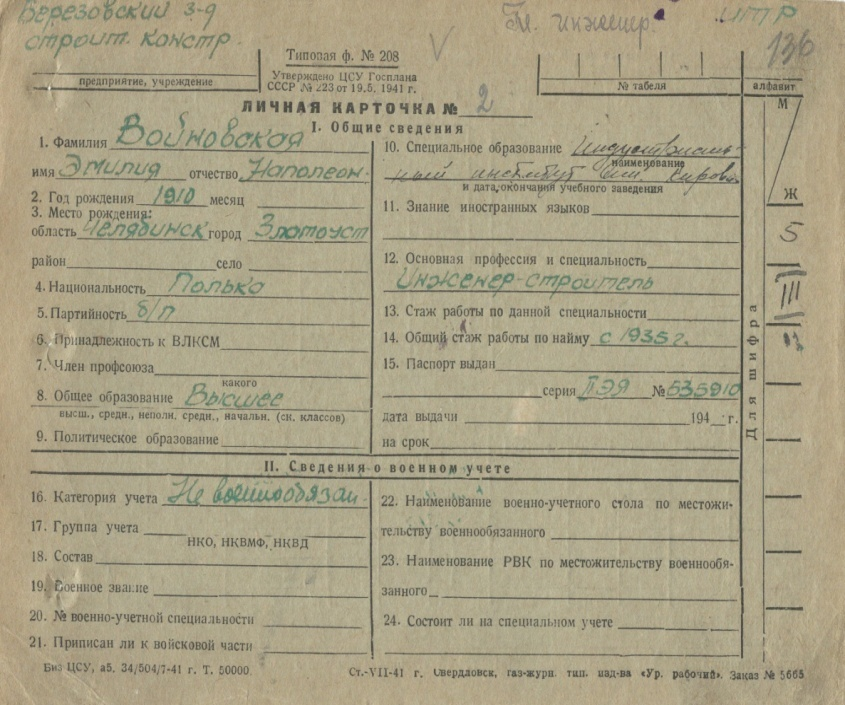 Березовский з-д
строит. констр.
Гл. инженер.
ИТР
136
Типовая ф. № 208
предприятие, учреждение
Утверждено ЦСУ Госплана
СССР № 223 от 19.5. 1941 г.
№ табеля
алфавит
ЛИЧНАЯ КАРТОЧКА № 2
М
Ж
5
III
I. Общие сведения
1. Фамилия Войновская
имя Эмилия отчество Наполеон.
2. Год рождения 1910 месяц
3. Место рождения:
область Челябинск город Златоуст
район село
4. Национальность Полька
5. Партийность б/п
6. Принадлежность к ВЛКСМ
7. Член профсоюза
какого
8. Общее образование Высшее
высш., средн., неполн. средн., начальн. (ск. классов)
9. Политическое образование
10. Специальное образование Индустриаль-
наименование
ный институт им. Кирова
и дата окончания учебного заведения
11. Знание иностранных языков
12. Основная профессия и специальность
Инженер-строитель
13. Стаж работы по данной специальности
14. Общий стаж работы по найму с 1935 г.
15. Паспорт выдан
серия ІІЭЯ № 535910
дата выдачи 194 г.
на срок
Для шифра
II. Сведения о военном учете
16. Категория учета Не военнообязан.
17. Группа учета
НКО, НКВМФ, НКВД
18. Состав
19. Военное звание
20. № военно-учетной специальности
21. Приписан ли к войсковой части
22. Наименование военно-учетного стола по местожи-
тельству военнообязанного
23. Наименование РВК по местожительству военнообя-
занного
24. Состоит ли на специальном учете
Биз ЦСУ, а5. 34/504/7-41 г. Т. 50000.
Ст.-VII-41 г. Свердловск, газ-журн. тип. изд-ва «Ур. рабочий». Заказ № 5665